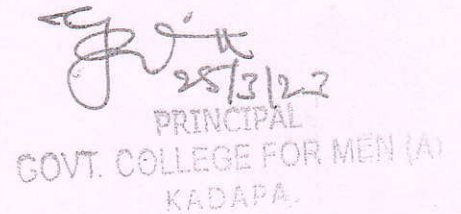 25/3/23
PRINCIPAL
GOVT. COLLEGE FOR MEN (A)
KADAPA.